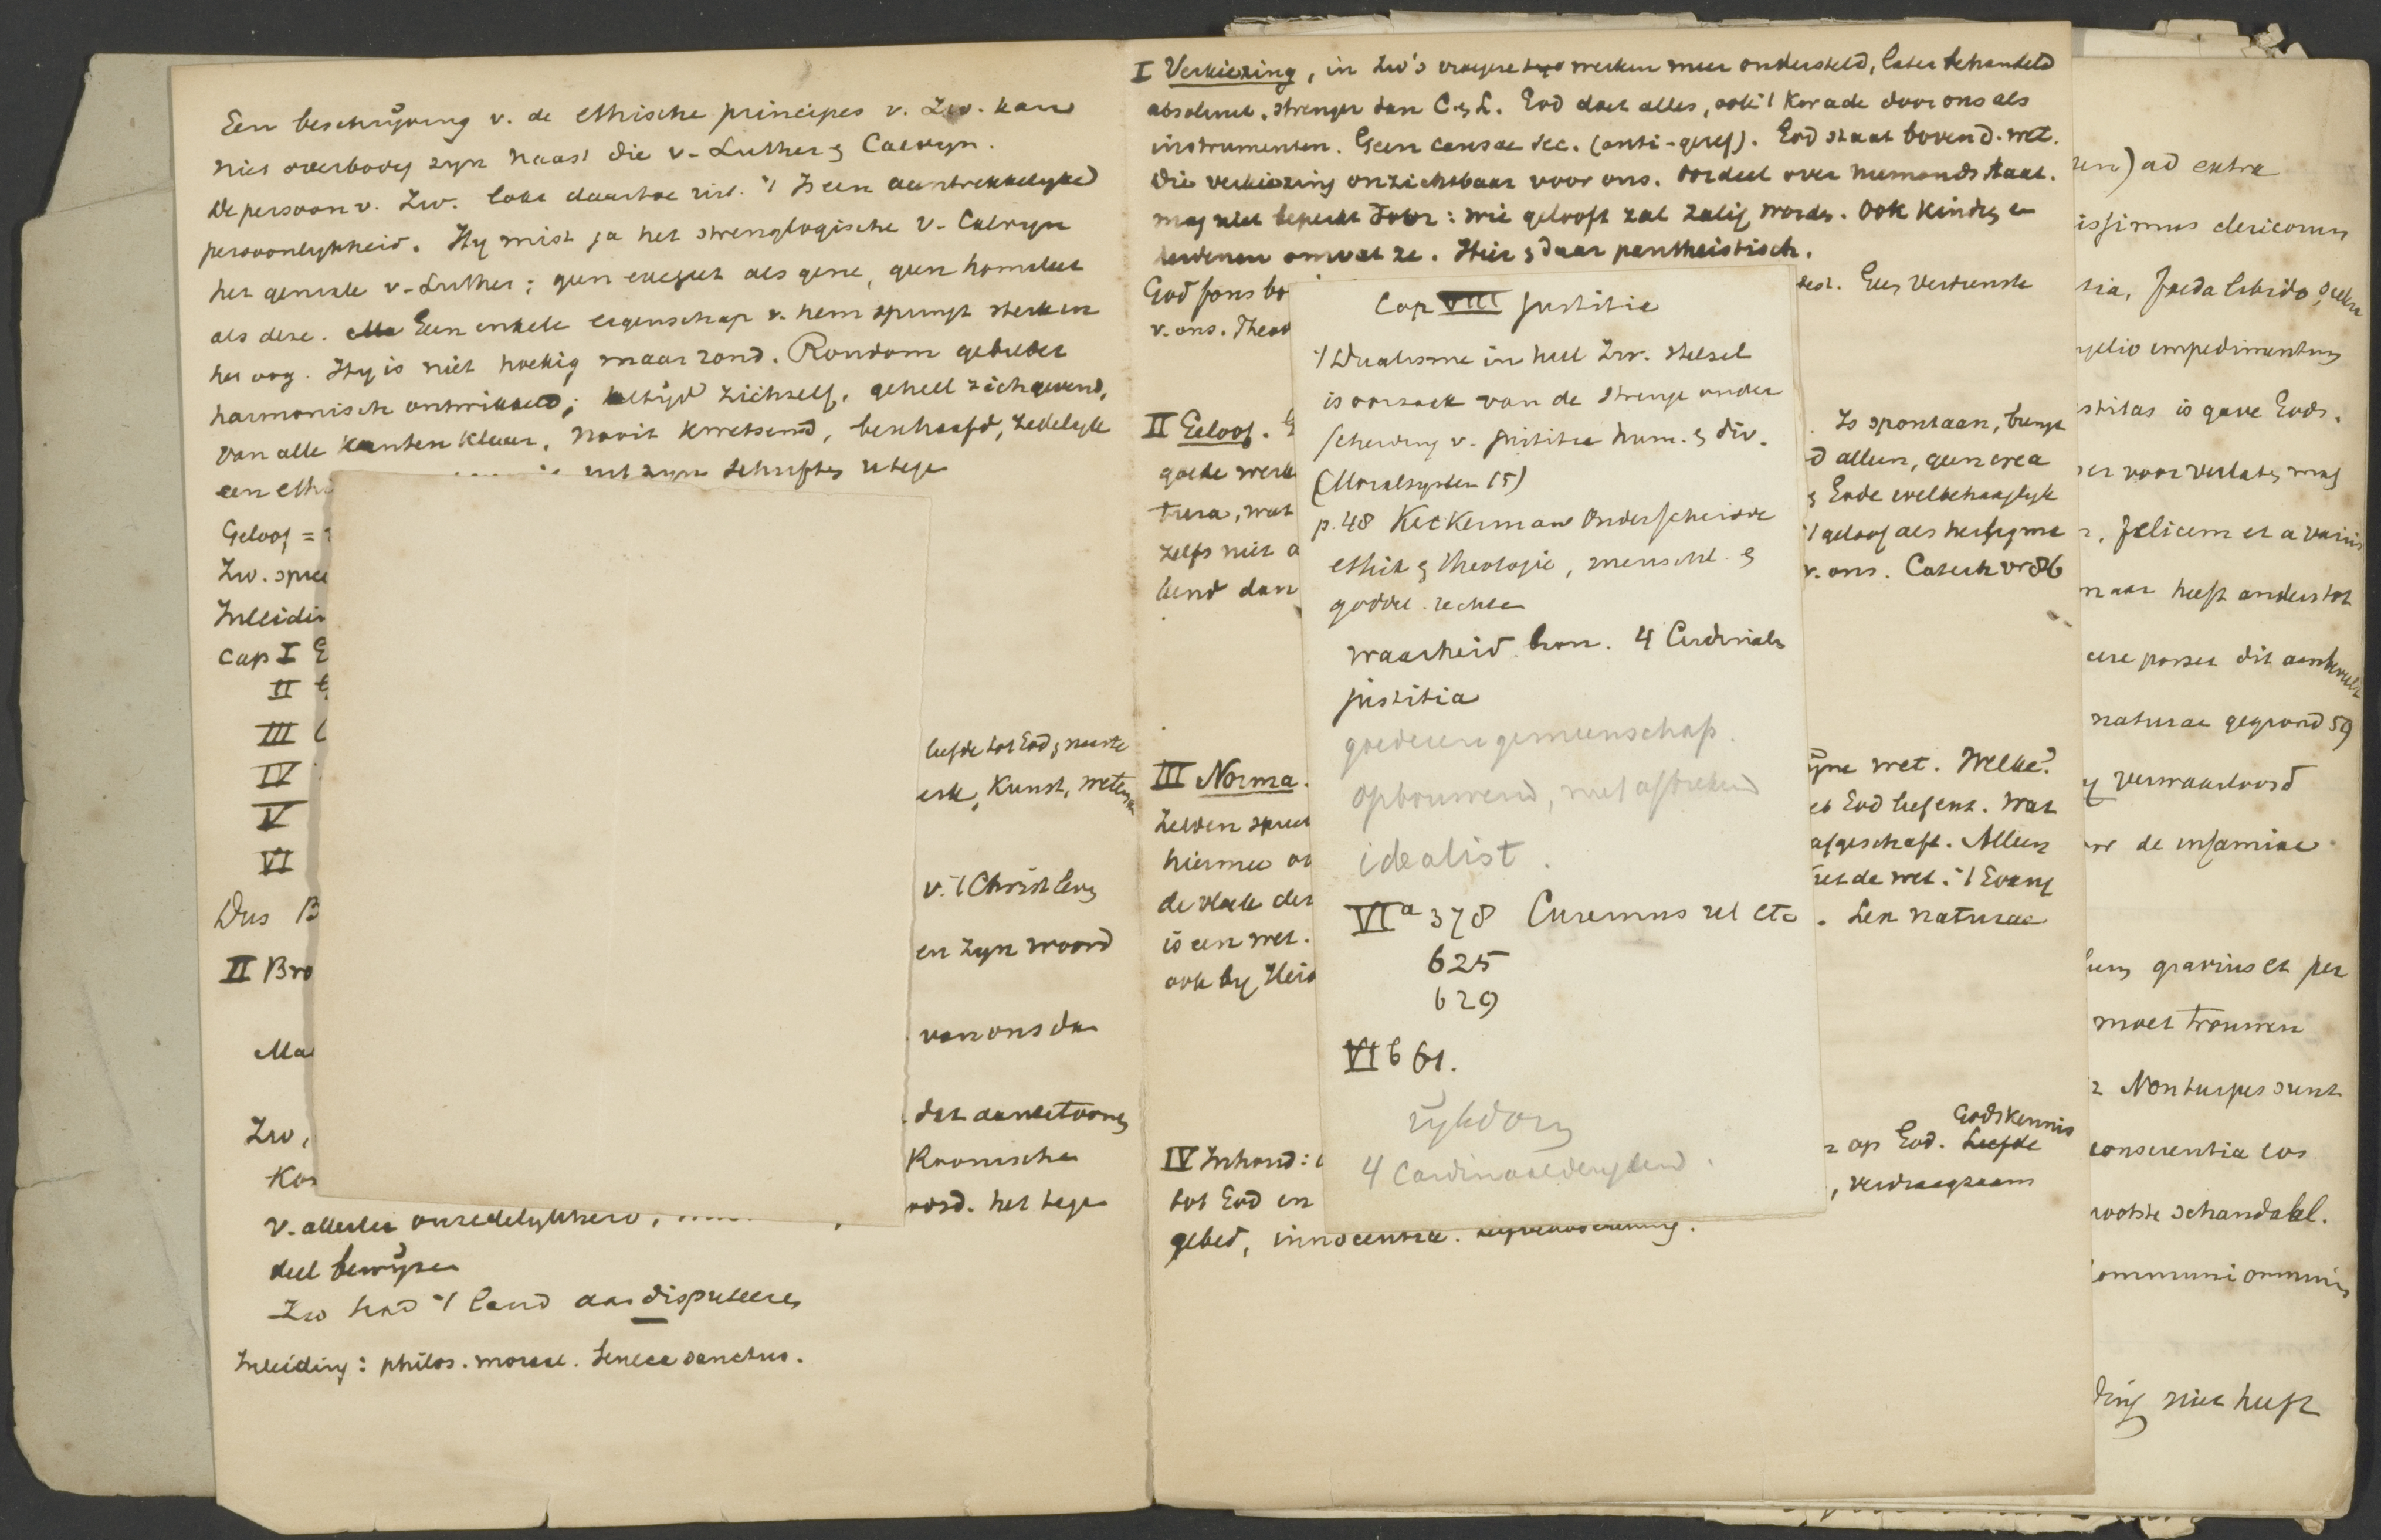 Een beschrijving v. de ethische principes v. Zw. kan
niet overbodig zyn naast die v. Luther & Calvyn.
De persoon v. Zw. lokt daartoe uit. 't Is een aantrekkelyke
persoonlykheid. Hy mist ja het strenglogische v. Calvyn
het geniale v. Luther; geen exegeet als gene, geen homileet
als deze. Een enkele eigenschap v. hem springt sterk in
het oog. Hy is niet hoekig maar rond. Rondom gebeeldet
harmonisch ontwikkeld; altijd zichzelf, geheel zichgevend,
van alle kanten klaar, nooit kwetsend, beschaafd, zedelyk
een ethi
uit zyne schriften
Geloof =
Zw. spree
Inleidin
Cap I
II
III
IV
V
VI
Dus B
II Bro
Ma
Zw,
liefde tot God & naaste
erk, Kunst, wetens
v. 't Christ leven
en zyn woord
van ons da
dat aan te toonen
Roomsche
oord. het tege
v. allerlei onzedelykheid,
deel bewijzen
Zw had 't land aan disputeeren
Inleiding: philos. moraal. Seneca sanctus.
I Verkiezing, in Zw's vroegere werken meer ondersteld, later behandeld
absoluut, strenger dan C & L. God doet alles, ook 't kwade door ons als
instrumenten. Geen causae sec. (anti-geref). God staat boven d. wet.
Die verkiezing onzichtbaar voor ons. Oordeel over niemands staat.
mag niet beperkt door: wie gelooft zal zalig worden. Ook kindren en
heidenen omvat ze. Hier & daar pantheistisch.
God fons bo
Geen Verdienste
v. ons. Theod
II Geloof.
Is spontaan, brengt
goede werk
d alleen, geen crea
tura, wat
& Gode welbehaaglyk
zelfs niet a
't geloof als
bend dan
v. ons. Catech vr 86
III Norma.
ijne wet. Welke?
zelden spree
God liefent. Wat
hiermee
afgeschaft. Alleen
de vloek der
de wet. 't Evang
is een wet.
. Lex naturae
ook by Heid
IV Inhoud:
op God. Liefde
Godskennis
tot God en
, verdraagzaam
gebed, innocentia.
Cap VIII Justitia
't Dualisme in heel Zw. stelsel
is oorzaak van de strenge onder
scheiding v. justitia hum. & div.
(Moralsystem 15)
p. 48 Keckerman onderscheidde
ethik & theologie, menschl. &
goddel. rechte
waarheid bron. 4 Cardinale
justitia
goederengemeenschap.
opbouwend, niet afbrekend
idealist.
VIa 378 Curemus vel etc
625
629
VI b 61.
rijkdom
4 Cardinaaldeugden.
en) ad extra
issimus clericorum
tia, foeda libido,
gelio impedimentum
stitas is gave Gods.
er voor verlaten mag
, felicem et a
maar heeft anders tot
naturae gegrond 59
verwaarloosd
de infamiae
gravius et per
moet trouwen
Non turpes sunt
conscientia eos
grootste schandaal.
communi omnium
ding niet heeft